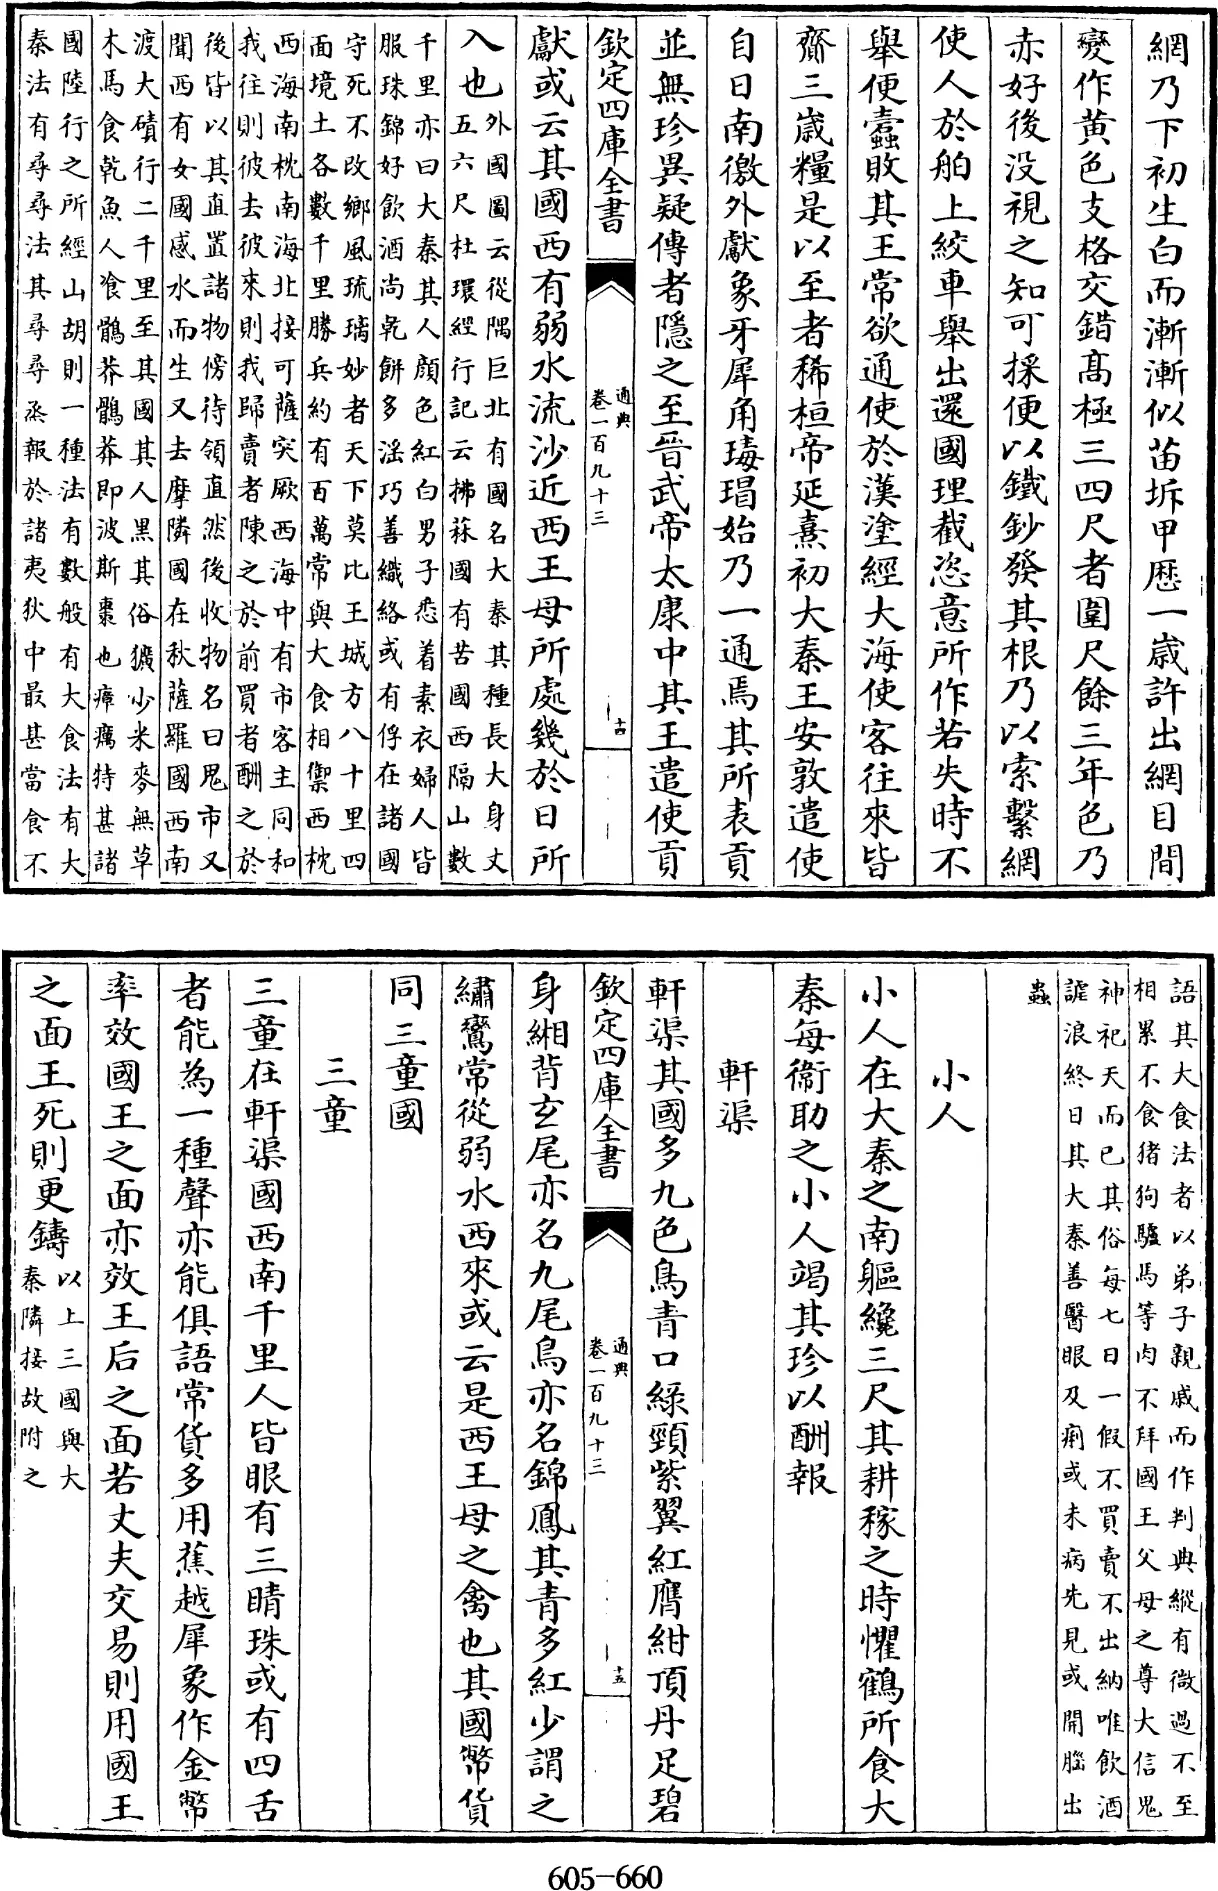 網乃下初生白而漸漸似苗坼甲歴一歳許出網目間
變作黄色支格交錯髙極三四尺者圍尺餘三年色乃
赤好後没視之知可採便以鐵鈔發其根乃以索繫網
使人於舶上絞車舉出還國理截恣意所作若失時不
舉便蠧敗其王常欲通使於漢塗經大海使客往來皆
齎三歳糧是以至者稀桓帝延熹初大秦王安敦遣使
自日南徼外獻象牙犀角瑇瑁始乃一通焉其所表貢
並無珍異疑傳者隱之至晉武帝太康中其王遣使貢
欽定四庫全書
通典
卷一百九十三
十四
獻或云其國西有弱水流沙近西王母所處幾於日所
入也外國圖云從隅巨北有國名大秦其種長大身丈
五六尺杜環經行記云拂菻國有苫國西隔山數
千里亦曰大秦其人顔色紅白男子悉着素衣婦人皆
服珠錦好飲酒尚乾餅多淫巧善織絡或有俘在諸國
守死不改鄉風琉璃妙者天下莫比王城方八十里四
面境土各數千里勝兵約有百萬常與大食相禦西枕
西海南枕南海北接可薩突厥西海中有市客主同和
我往則彼去彼來則我歸賣者陳之於前買者酬之於
後皆以其直置諸物傍待領直然後收物名曰鬼市又
聞西有女國感水而生又去摩隣國在秋薩羅國西南
渡大磧行二千里至其國其人黑其俗獷少米麥無草
木馬食乾魚人飡鶻莽鶻莽即波斯棗也瘴癘特甚諸
國陸行之所經山胡則一種法有數般有大食法有大
秦法有尋尋法其尋尋烝報於諸夷狄中最甚當食不
語其大食法者以弟子親戚而作判典縱有微過不至
相累不食猪狗驢馬等肉不拜國王父母之尊大信鬼
神祀天而已其俗每七日一假不買賣不出納唯飲酒
謔浪終日其大秦善醫眼及痢或未病先見或開腦出
蟲
小人
小人在大秦之南軀纔三尺其耕稼之時懼鶴所食大
秦每衞助之小人竭其珍以酬報
軒渠
軒渠其國多九色鳥青口綠頸紫翼紅膺紺頂丹足碧
欽定四庫全書
通典
卷一百九十三
十五
身緗背玄尾亦名九尾鳥亦名錦鳳其青多紅少謂之
繡鸞常從弱水西來或云是西王母之禽也其國幣貨
同三童國
三童
三童在軒渠國西南千里人皆眼有三睛珠或有四舌
者能為一種聲亦能俱語常貨多用蕉越犀象作金幣
率效國王之面亦效王后之面若丈夫交易則用國王
之面王死則更鑄以上三國與大
秦隣接故附之
605-660